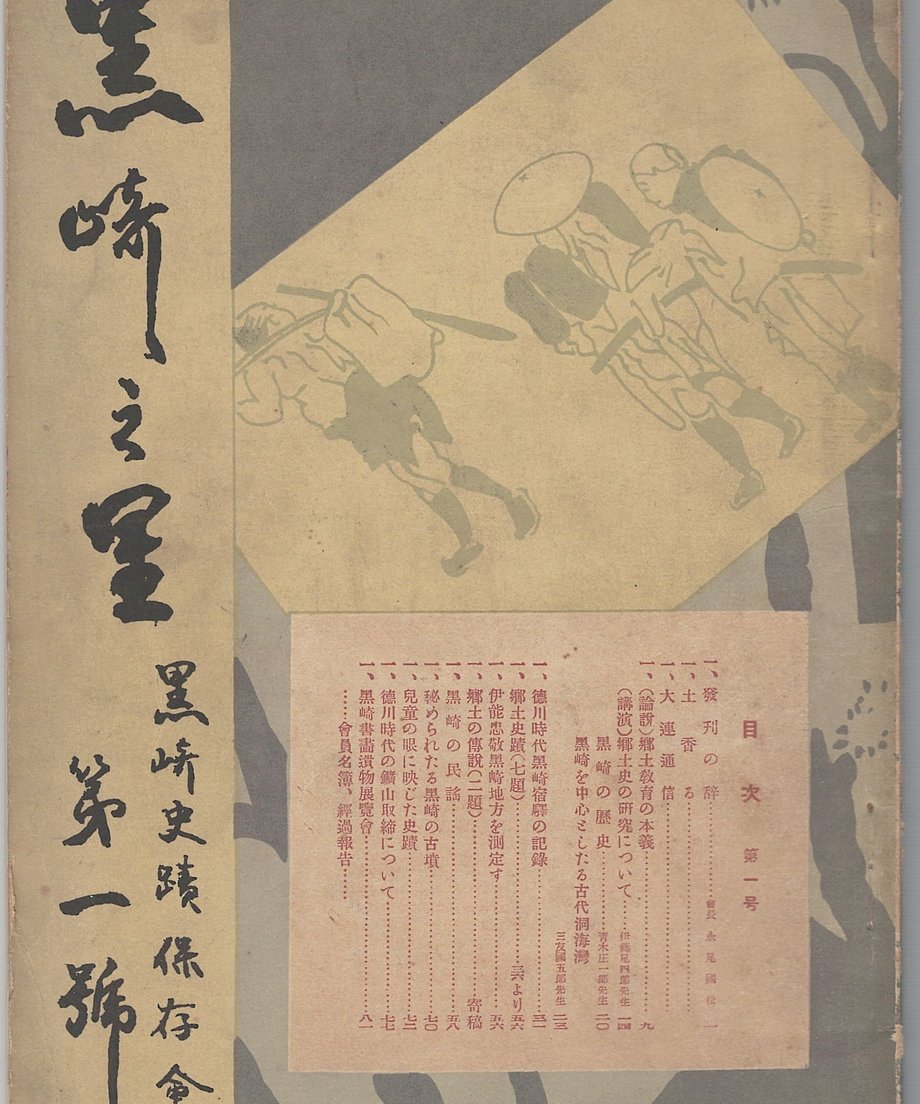 黒崎之里
黒崎史蹟保存會
第一號
目次 第一号
一、發刊の辞……會長 永尾國松 一
一、土香る
一、大連通信
一、(論說)郷土敎育の本義……九
(講演)郷土史の硏究について……伊藤尾四郎先生 一四
黒崎の歷史……靑木庄一郎先生 二〇
黒崎を中心としたる古代洞海灣
三友國五郎先生 二三
一、德川時代黒崎宿驛の記錄……三一
一、郷土史蹟(七題)……三六より五六
一、伊能忠敬黒崎地方を測定す……五六
一、郷土の傳說(二題)……寄稿
一、黒崎の民謠……五八
一、秘められたる黒崎の古墳……七〇
一、兒童の眼に映じた史蹟……七二
一、德川時代の鑛山取締について……七七
一、黒崎書畵遺物展覽會……八一
……會員名簿、經過報告……